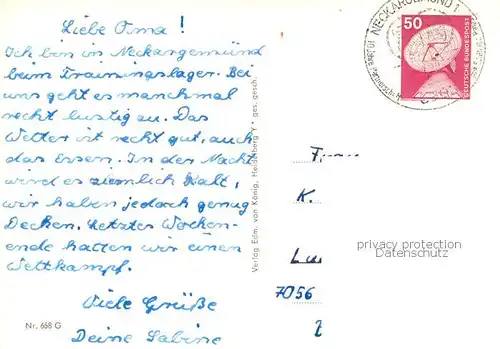 Liebe Oma!
Ich bin in Neckargemünd
beim Trainingslager. Bei
uns geht es manchmal
recht lustig zu. Das
Wetter ist recht gut, auch
das Essen. In der Nacht
wird es ziemlich kalt,
wir haben jedoch genug
Decken. Letztes Wochen-
ende hatten wir einen
Wettkampf.
Viele Grüße
Deine Sabine
Nr. 668 G
Verlag Edm. von König, Heidelberg ges. gesch.
NECKARGEMÜND 1
50
DEUTSCHE BUNDESPOST
K.
7056
privacy protection
Datenschutz